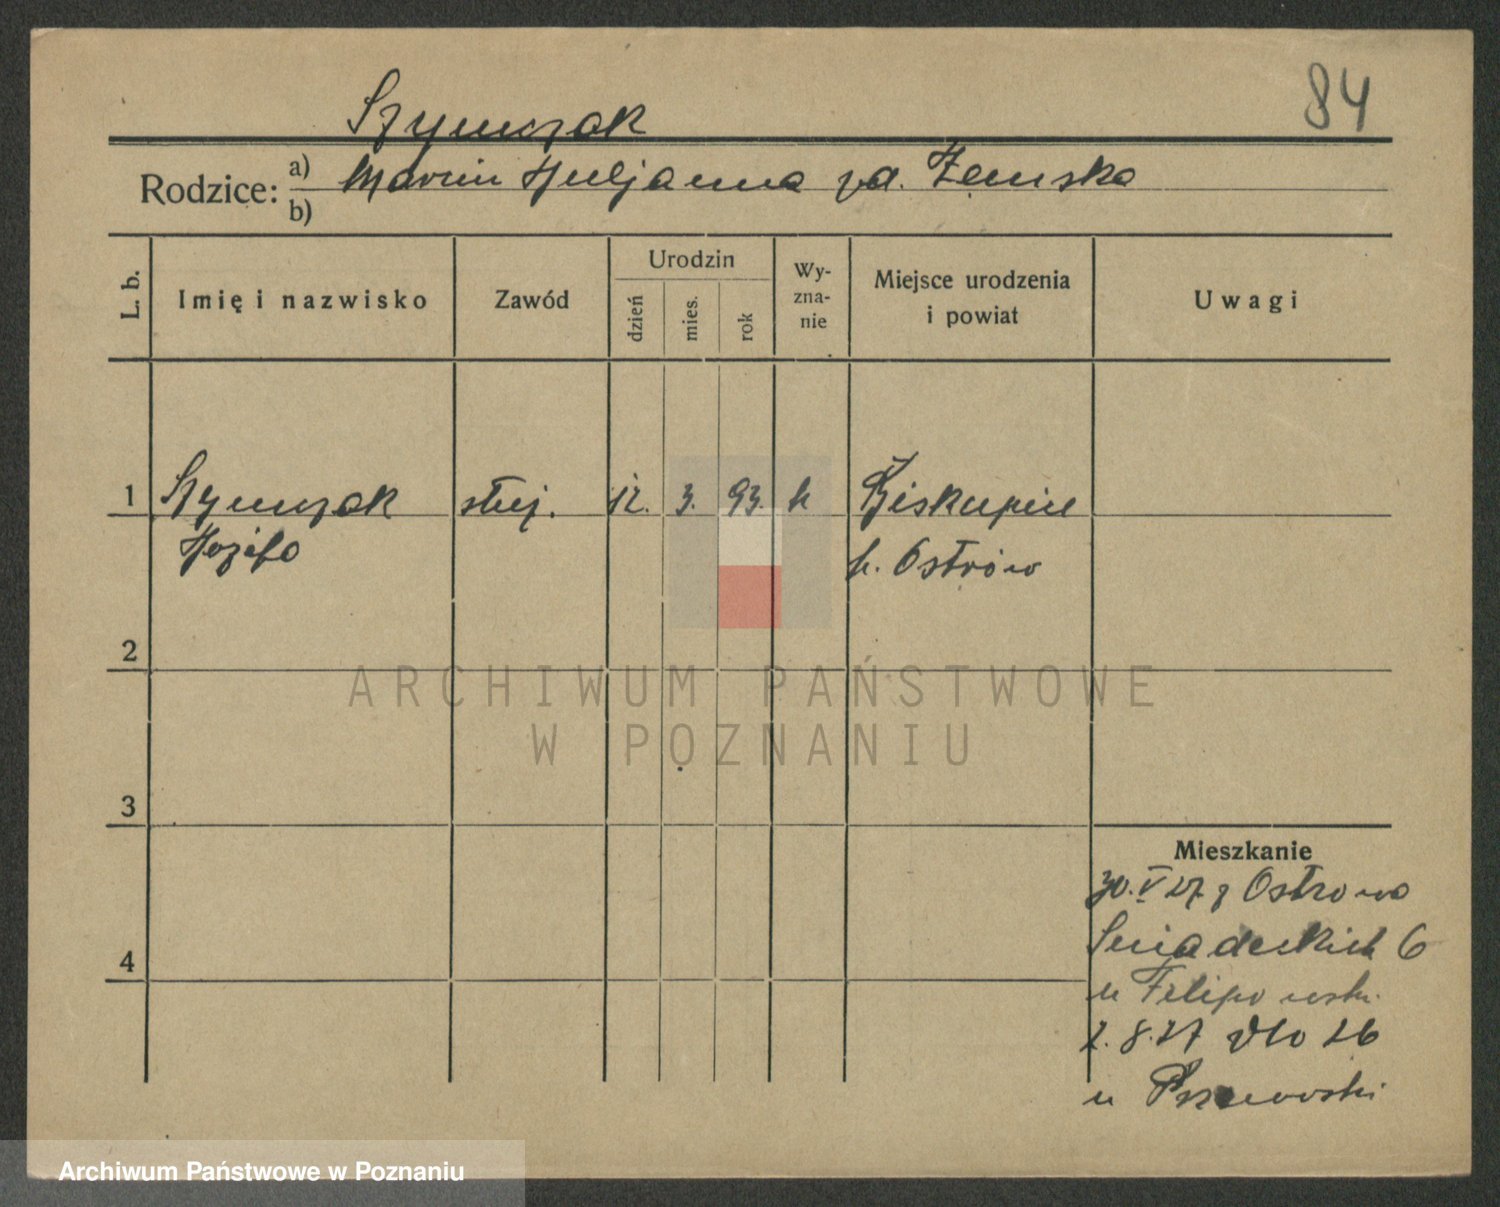 84
Szymczak
Rodzice: a) Marcin Juljanna zd. Zemska
b)
L. b.
Imię i nazwisko
Zawód
Urodzin
dzień
mies.
rok
Wy-
zna-
nie
Miejsce urodzenia
i powiat
Uwagi
1 Szymczak służ. 12. 3. 93. k Biskupice
Józefa p. Ostrów
2
3
4
Mieszkanie
30. V 27 z Ostrowa
Śniadeckich 6
u Filipowski
2.8.27 26
u
ARCHIWUM PAŃSTWOWE
W POZNANIU
Archiwum Państwowe w Poznaniu